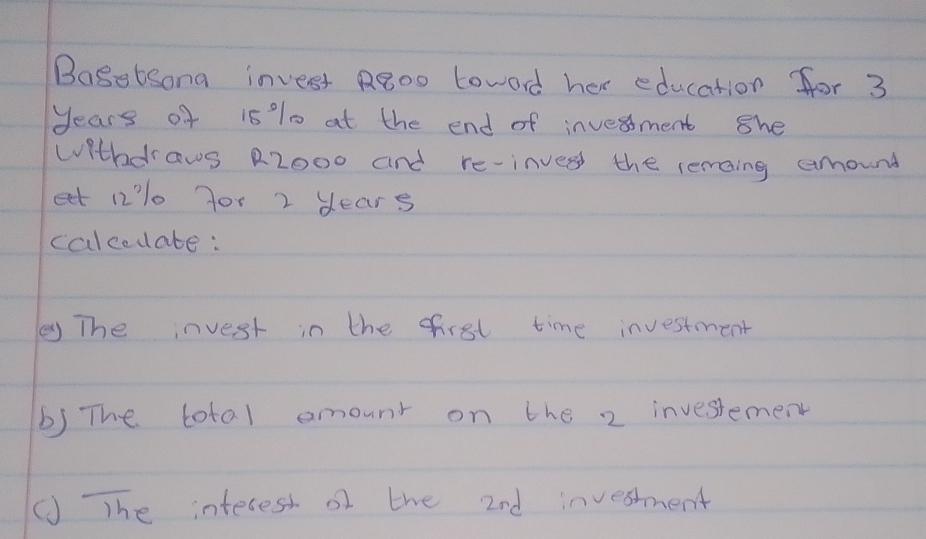 Basetsana invest R800 toward her education for 3
Years of 15% at the end of investment She
Withdraws R2000 and re-invest the remaing amound
at 12% for 2 years
calculate:
a) The invest in the first time investment
b) The total amount on the 2 investement
c) The interest of the 2nd investment